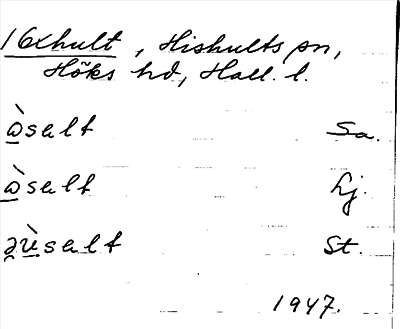 16xhult, Hishults sn,
Höks hd, Hall. l.
ὼsalt Sa.
ὼsalt Lj.
əѝsalt St.
1947.